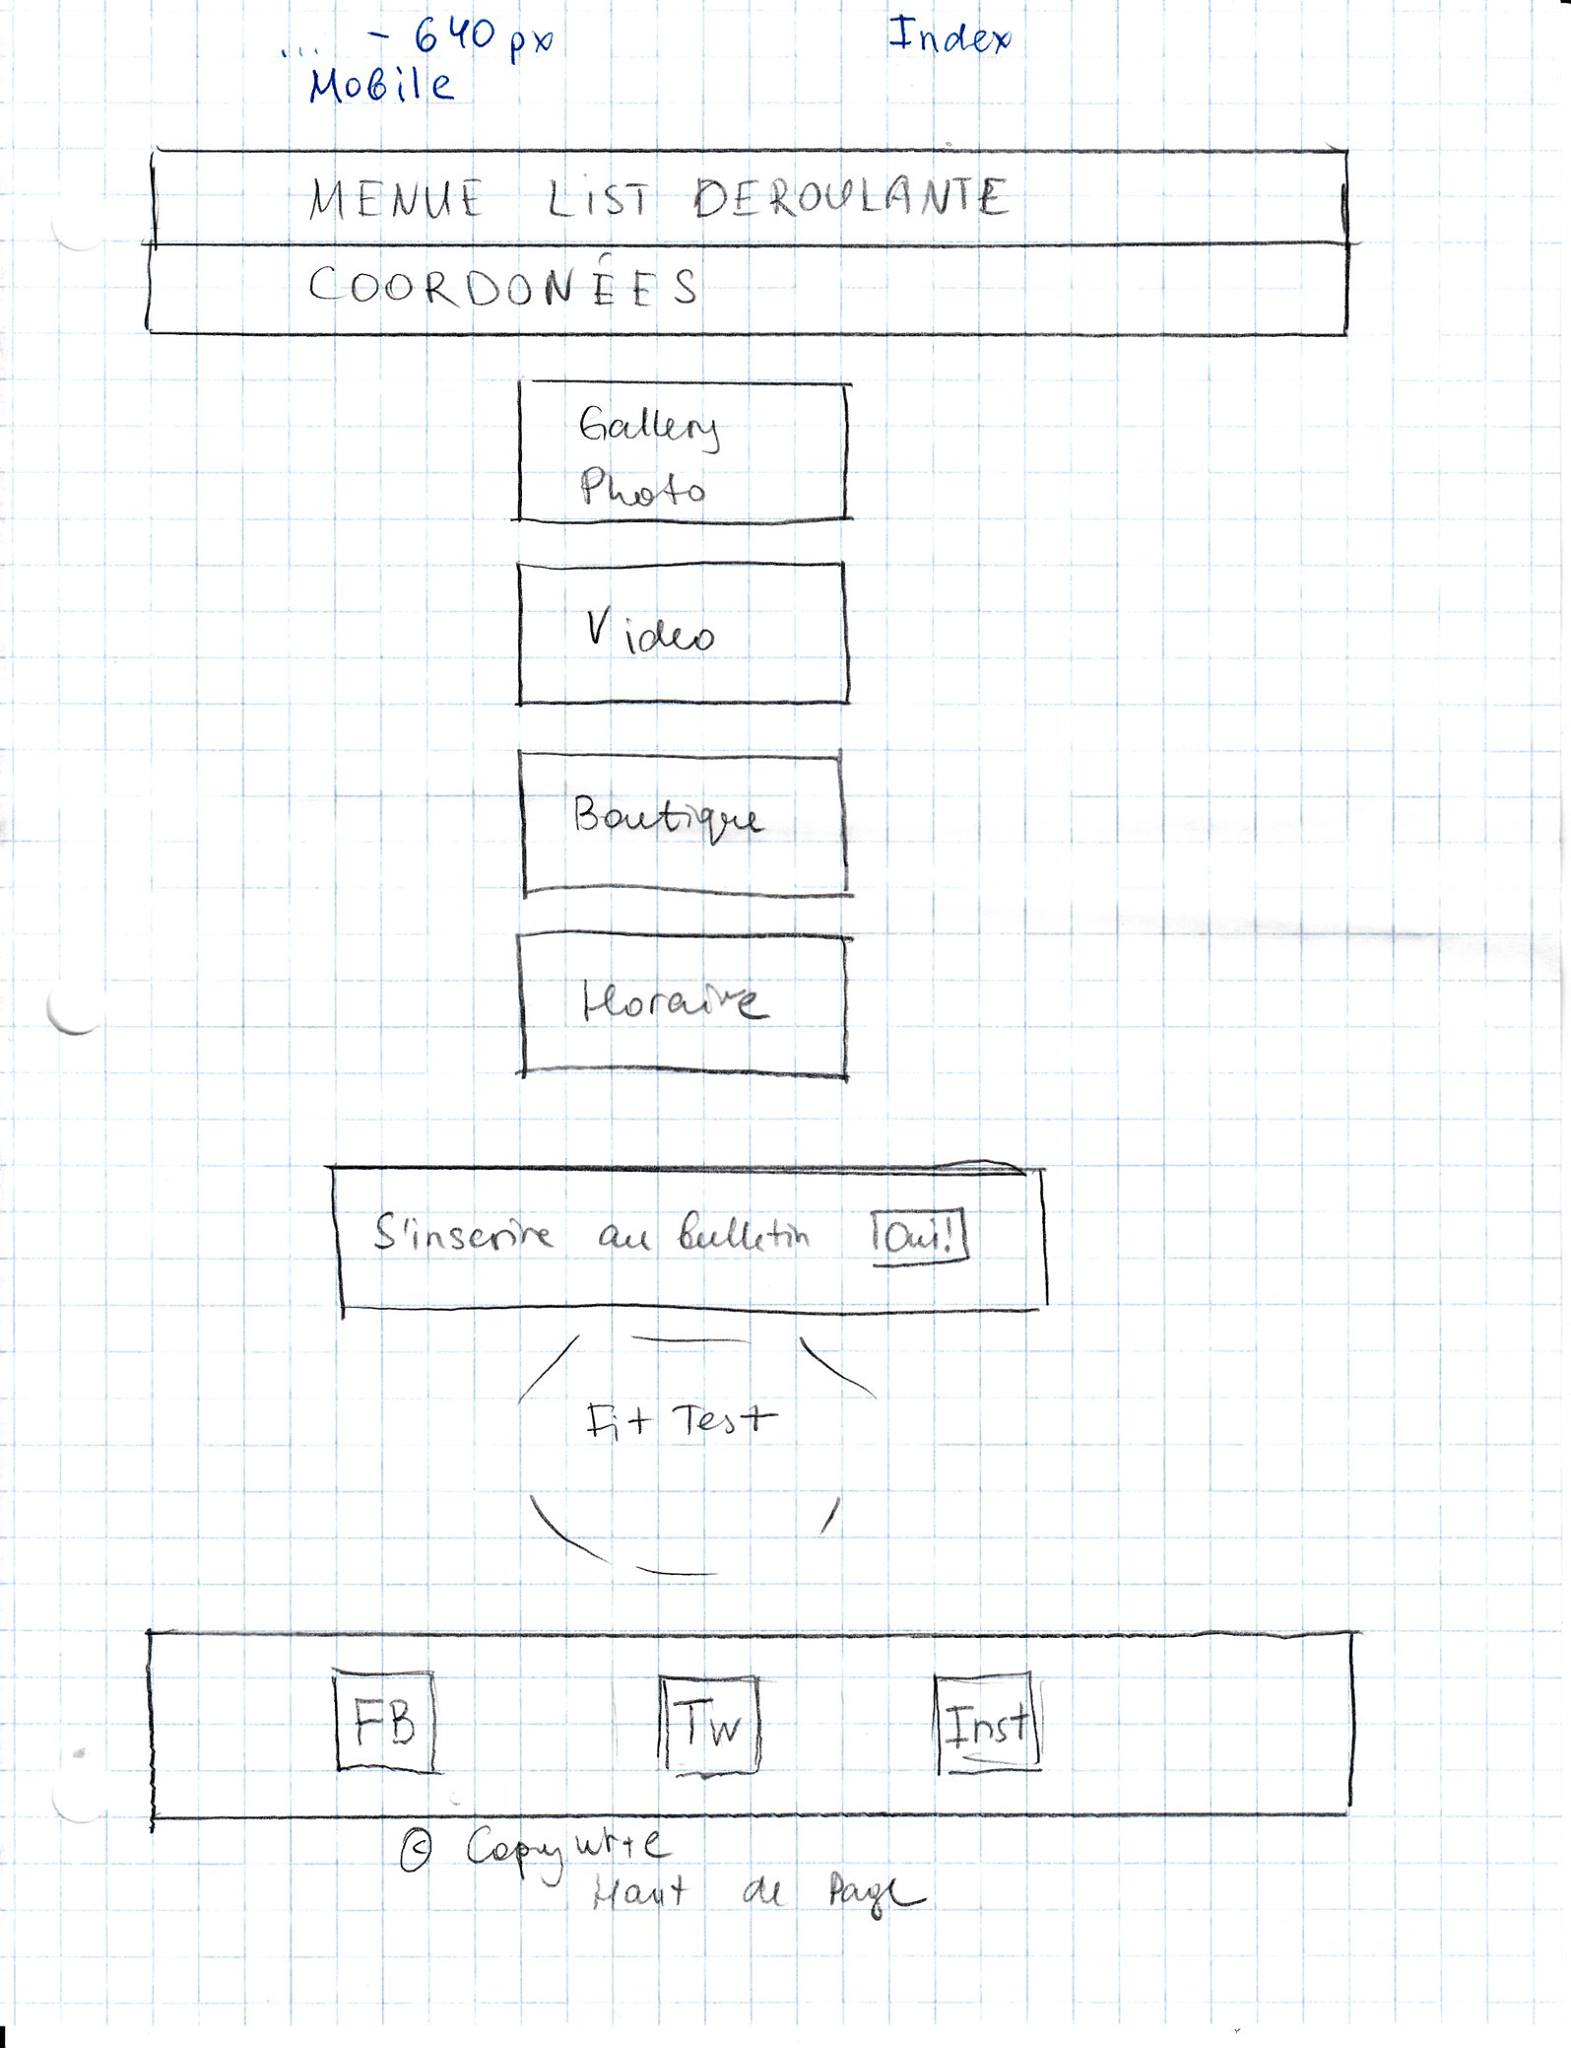 ... - 640px
Index
Mobile
MENUE LIST DEROULANTE
COORDONÉES
Gallery
Photo
Video
Boutique
Horaire
S'inscrire au bulletin Oui!
Fit Test
FB Tw Inst
© Copywrite
Haut de Page